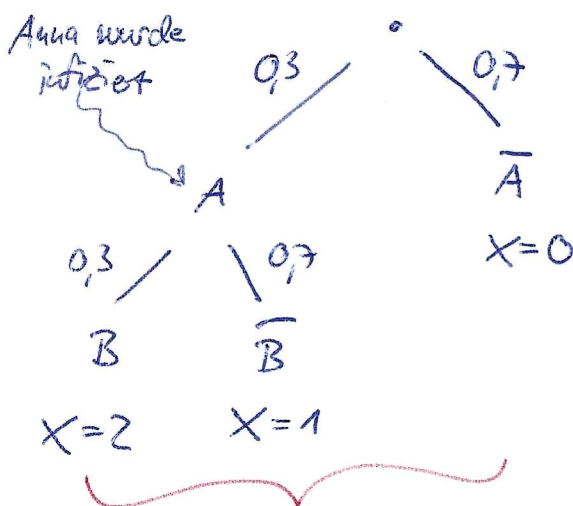 Anna wurde
infiziert
0,3
0,7
A
A̅
X=0
0,3
0,7
B
B̅
X=2
X=1